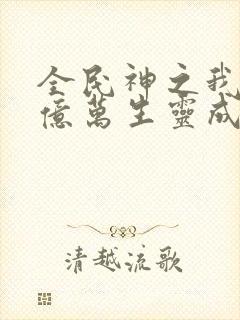 全民神之我
億萬生靈成
清越流歌